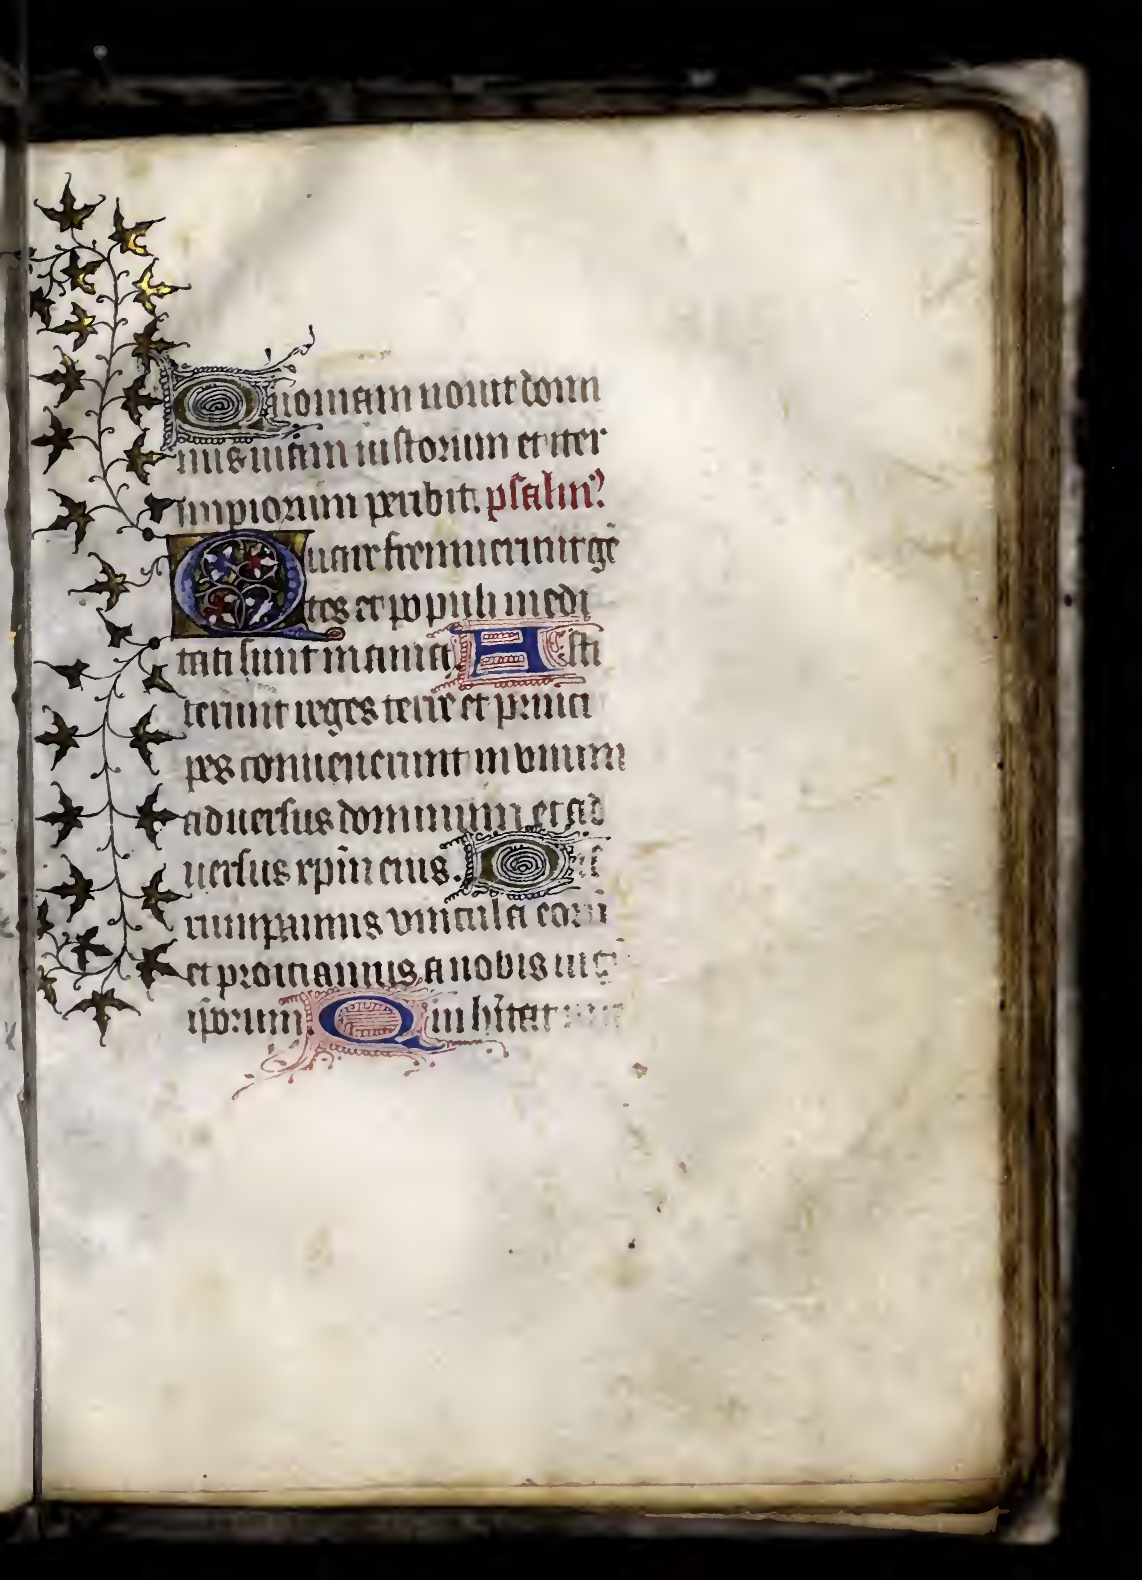 Quoniam nouit domi
nus uiam iustorum et iter
impiorum peribit. psalm᾽
Quare fremuerunt gē
tes et populi medi
tati sunt inania. Asti
terunt reges terre et princi
pes conuenerunt in vnum
aduersus dominum et ad
uersus xp̄m eius. Dis
rumpamus vincula eorū
et proiciamus a nobis iug
ip̄orum. Qui hītat